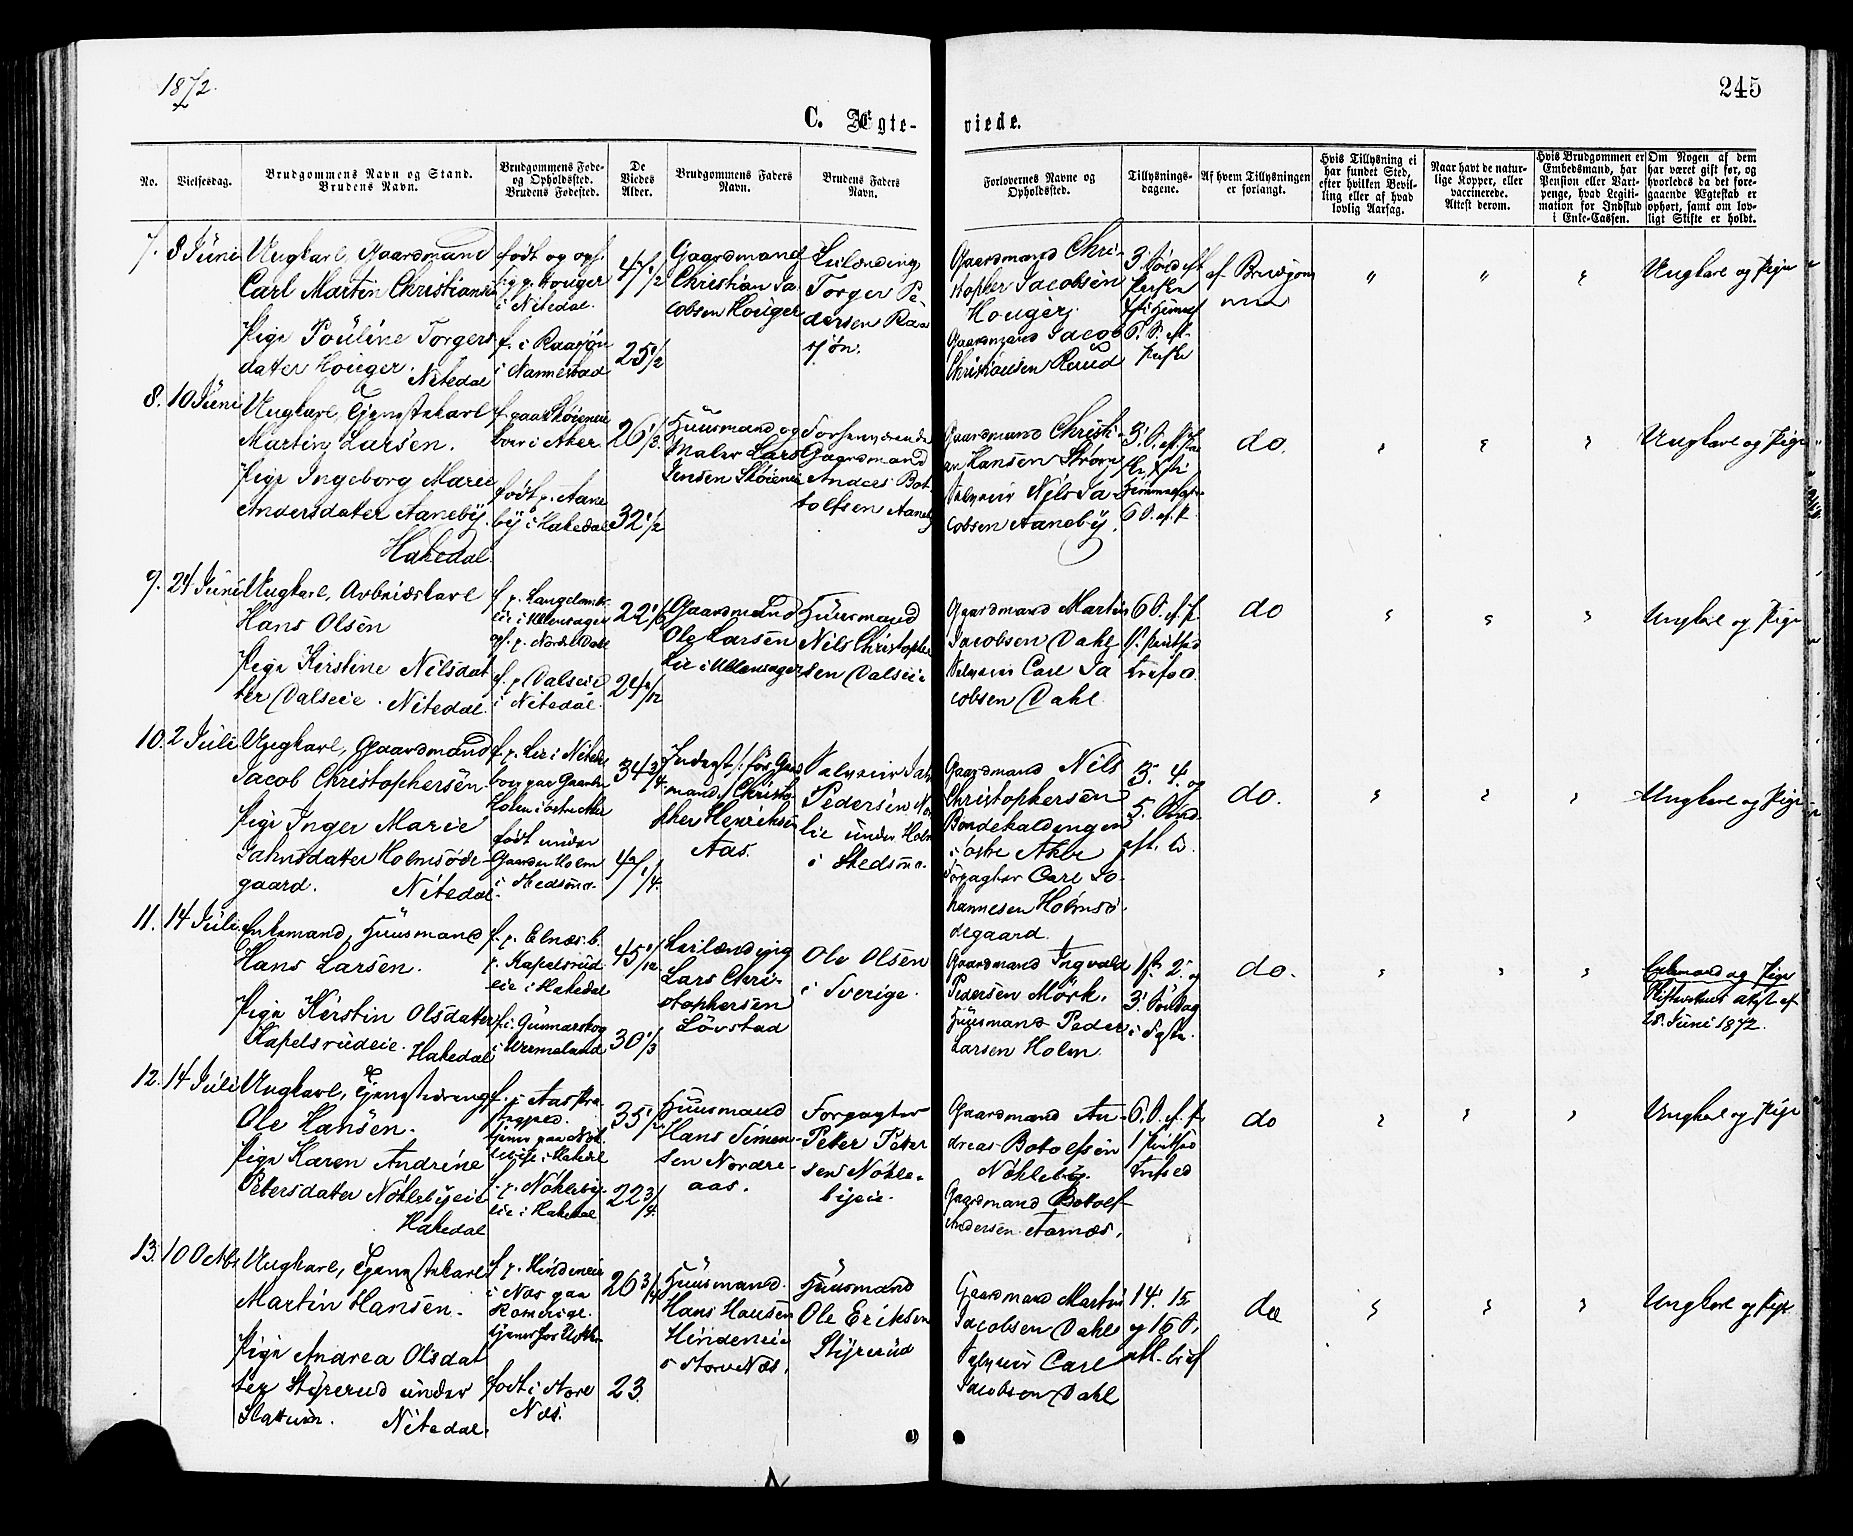 1872.
245
C. Ægte-
viede.
No.
Vielsesdag.
Brudgommens Navn og Stand.
Brudens Navn.
Brudgommens Føde-
og Opholdssted.
Brudens Fødested.
De
Viedes
Alder.
Brudgommens Faders
Navn.
Brudens Faders
Navn.
Forlovernes Navne og
Opholdssted.
Tillysnings-
dagene.
Af hvem Tillysningen
er forlangt.
Hvis Tillysning ei
har fundet Sted,
efter hvilken Bevil-
ling eller af hvad
lovlig Aarsag.
Naar havt de natur-
lige Kopper, eller
vaccinerede.
Attest derom.
Hvis Brudgommen er
Embedsmand, har
Pension eller Vart-
penge, hvad Legiti-
mation for Indskud
i Enke-Cassen.
Om Nogen af dem
har været gift før, og
hvorledes da det fore-
gaaende Ægteskab er
ophørt, samt om lov-
ligt Skifte er holdt.
7.
8 Juni
Ungkarl, Gaardmand
Carl Martin Christiansen
Pige Pouline Torgers
datter Houger.
Nitedal
født og opf.
p. g. Houger
i Nitedal.
f. i Raasjøn
i Nannestad
47 1/2
25 1/2
Gaardmand
Christian Ja
cobsen Houger
Leilænding
Torger Pe
dersen Raa
sjøn.
Gaardmand Chri-
stopher Jacobsen
Houger.
Gaardmand Jacob
Christiansen Ruud
af Brudgom
men
" " "
Ungkarl og Pige
8.
10 Juni
Ungkarl, Tjenestekarl
Martin Larsen.
Pige Ingeborg Marie
Andersdatter Aaneby.
Hakedal
f. paa Skøieneie
boer i Aker
født p. Aane
by i Hakedal
26 1/3
32 1/2
Huusmand og
Maler Lars
Jensen Skøieneie
Forhenværende
Gaardmand
Andres Bot
tolfsen Aaneby
Gaardmand Christi-
an Hansen Strøm
Selveier Nils Ja
cobsen Aaneby.
do.
" " "
Ungkarl og Pige
9.
24 Juni
Ungkarl, Arbeidskarl
Hans Olsen
Pige Kirstine Nilsdat
ter Dalseie. Nitedal.
i Ullensager
f. p. Dalseie
i Nitedal.
22 1/6
Gaardmand
Ole Larsen
Lie i Ullensager
Huusmand
Nils Christopher
sen Dalseie
Gaardmand Martin
Jacobsen Dahl
Selveier Carl Ja
cobsen Dahl
do
" " "
Ungkarl og Pige
10.
2 Juli
Ungkarl, Gaardmand
Jacob Christophersen.
Pige Inger Marie
Jahnsdatter Holmsøde-
gaard. Nitedal.
f. p. Lie i Nitedal
boer paa Gaarden
Holen i østre Aker
født under
Gaarden Holm
i Skedsmo.
34 3/4
Christo-
pher Henriksen
Aas.
Selveier Jahn
Pedersen
lie under Holm
i Skedsmo.
Gaardmand Nils
Christophersen
i østre Aker
Forpagter Carl Jo-
hannesen Holmsø-
degaard.
3. 4. og
5. Sønd.
do.
" " "
Ungkarl og Pige
11.
14 Juli
Enkemand, Huusmand
Hans Larsen.
Pige Kirstin Olsdatter
Kapelsrudeie. Hakedal
f. p. Elnæs. b.
p. Kapelsrud
eie i Hakedal
f. i Gunnarskog
i Wermeland
45 1/12
30 1/3
Leilænding
Lars Chri-
stophersen
Løvstad
Ole Olsen
i Sverige.
Gaardmand Ingvald
Pedersen Mørk.
Huusmand Peder
Larsen Holm.
1ste 2. og
3. Søndag
do.
" " "
Enkemand og Pige
Skifteretens attest af
28. Juni 1872.
12.
14 Juli
Ungkarl, Tjenestedreng
Ole Hansen.
Pige Karen Andrine
Petersdatter Nøklebyeie
Hakedal
f. p. Nøkleby-
eie i Hakedal
22 3/4
Huusmand
Hans Simen-
sen Nordre-
aas.
Forpagter
Peter Peter
sen Nøkle-
byeie.
Gaardmand An-
dreas Botolfsen
Nøkleby.
Gaardmand Botolf
Andersen Aarnæs.
do
" " "
Ungkarl og Pige
13.
10 Octbr
Ungkarl, Tjenestekarl
Martin Hansen.
Pige Andrea Olsdat
ter Styrerud under
Slattum. Nitedal.
f. p. Hindeneie
i Næs paa
Romerige.
født i Store
Næs.
26 3/4
23.
Huusmand
Hans Hansen
Hindeneie
i Store Næs.
Huusmand
Ole Eriksen
Styrerud
Gaardmand Martin
Jacobsen Dahl
Selveier Carl
Jacobsen Dahl
14. 15
og 16 S.
do
" " "
Ungkarl og Pige